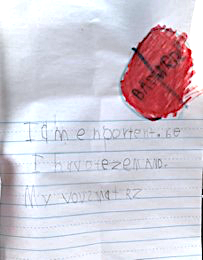 BADMRZ
I am enportent. Be
I hav otezem AND.
My voys mat rz